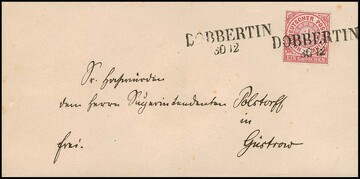 DOBBERTIN
30 12
DOBBERTIN
30 12
EIN GROSCHEN
Sr. Hochwürden
dem Herrn Superintendenten Polstorff
in
frei. Güstrow